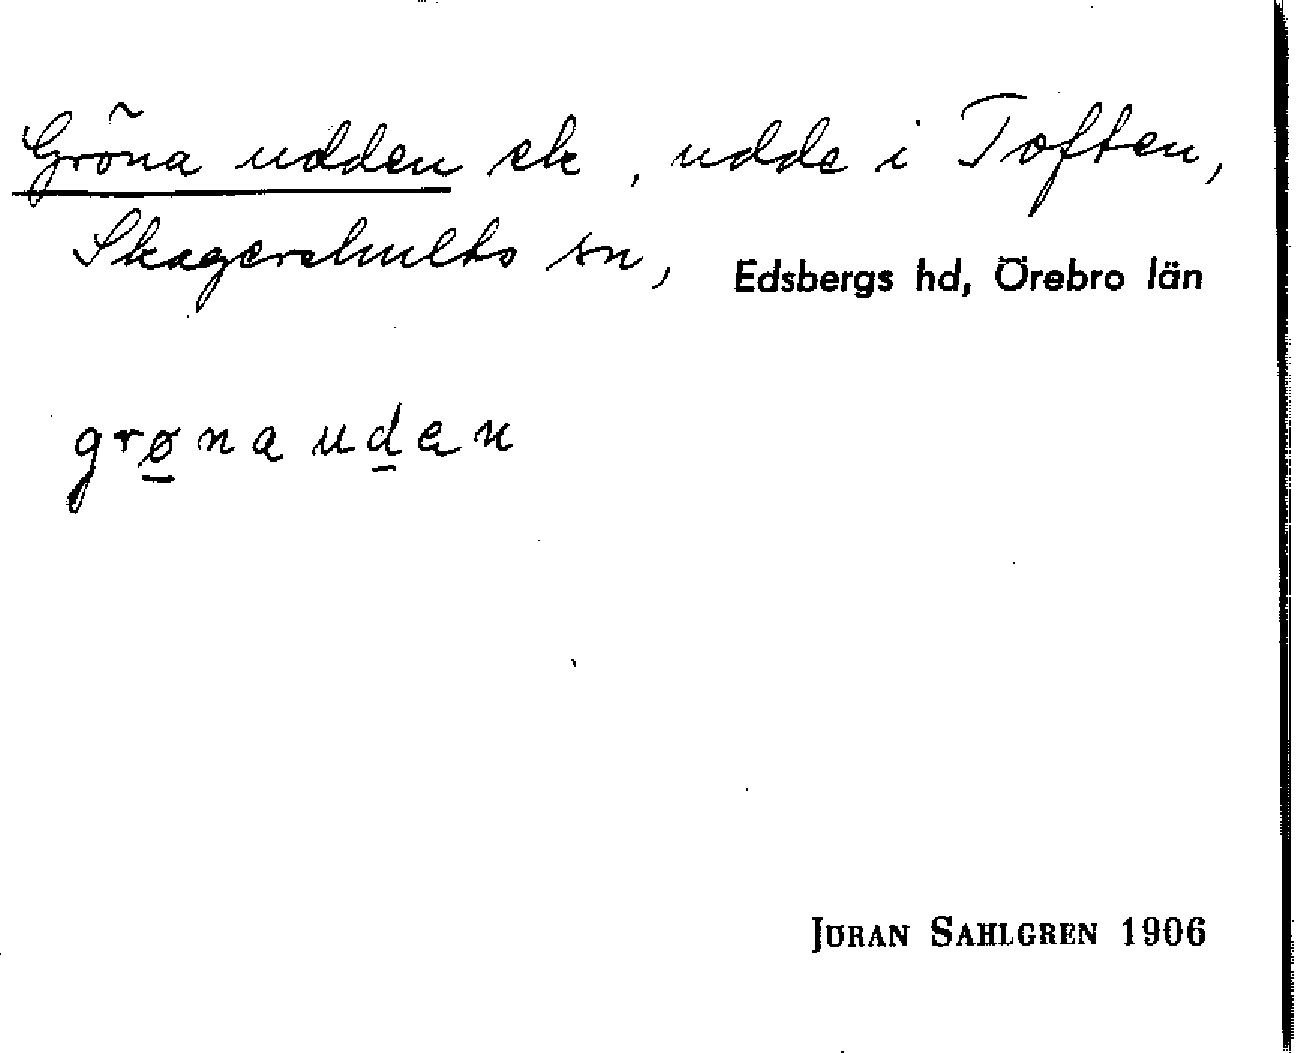 Gröna udden ek, udde i Toften,
Skagershults sn, Edsbergs hd, Örebro län
grøna udan
JÖRAN SAHLGREN 1906